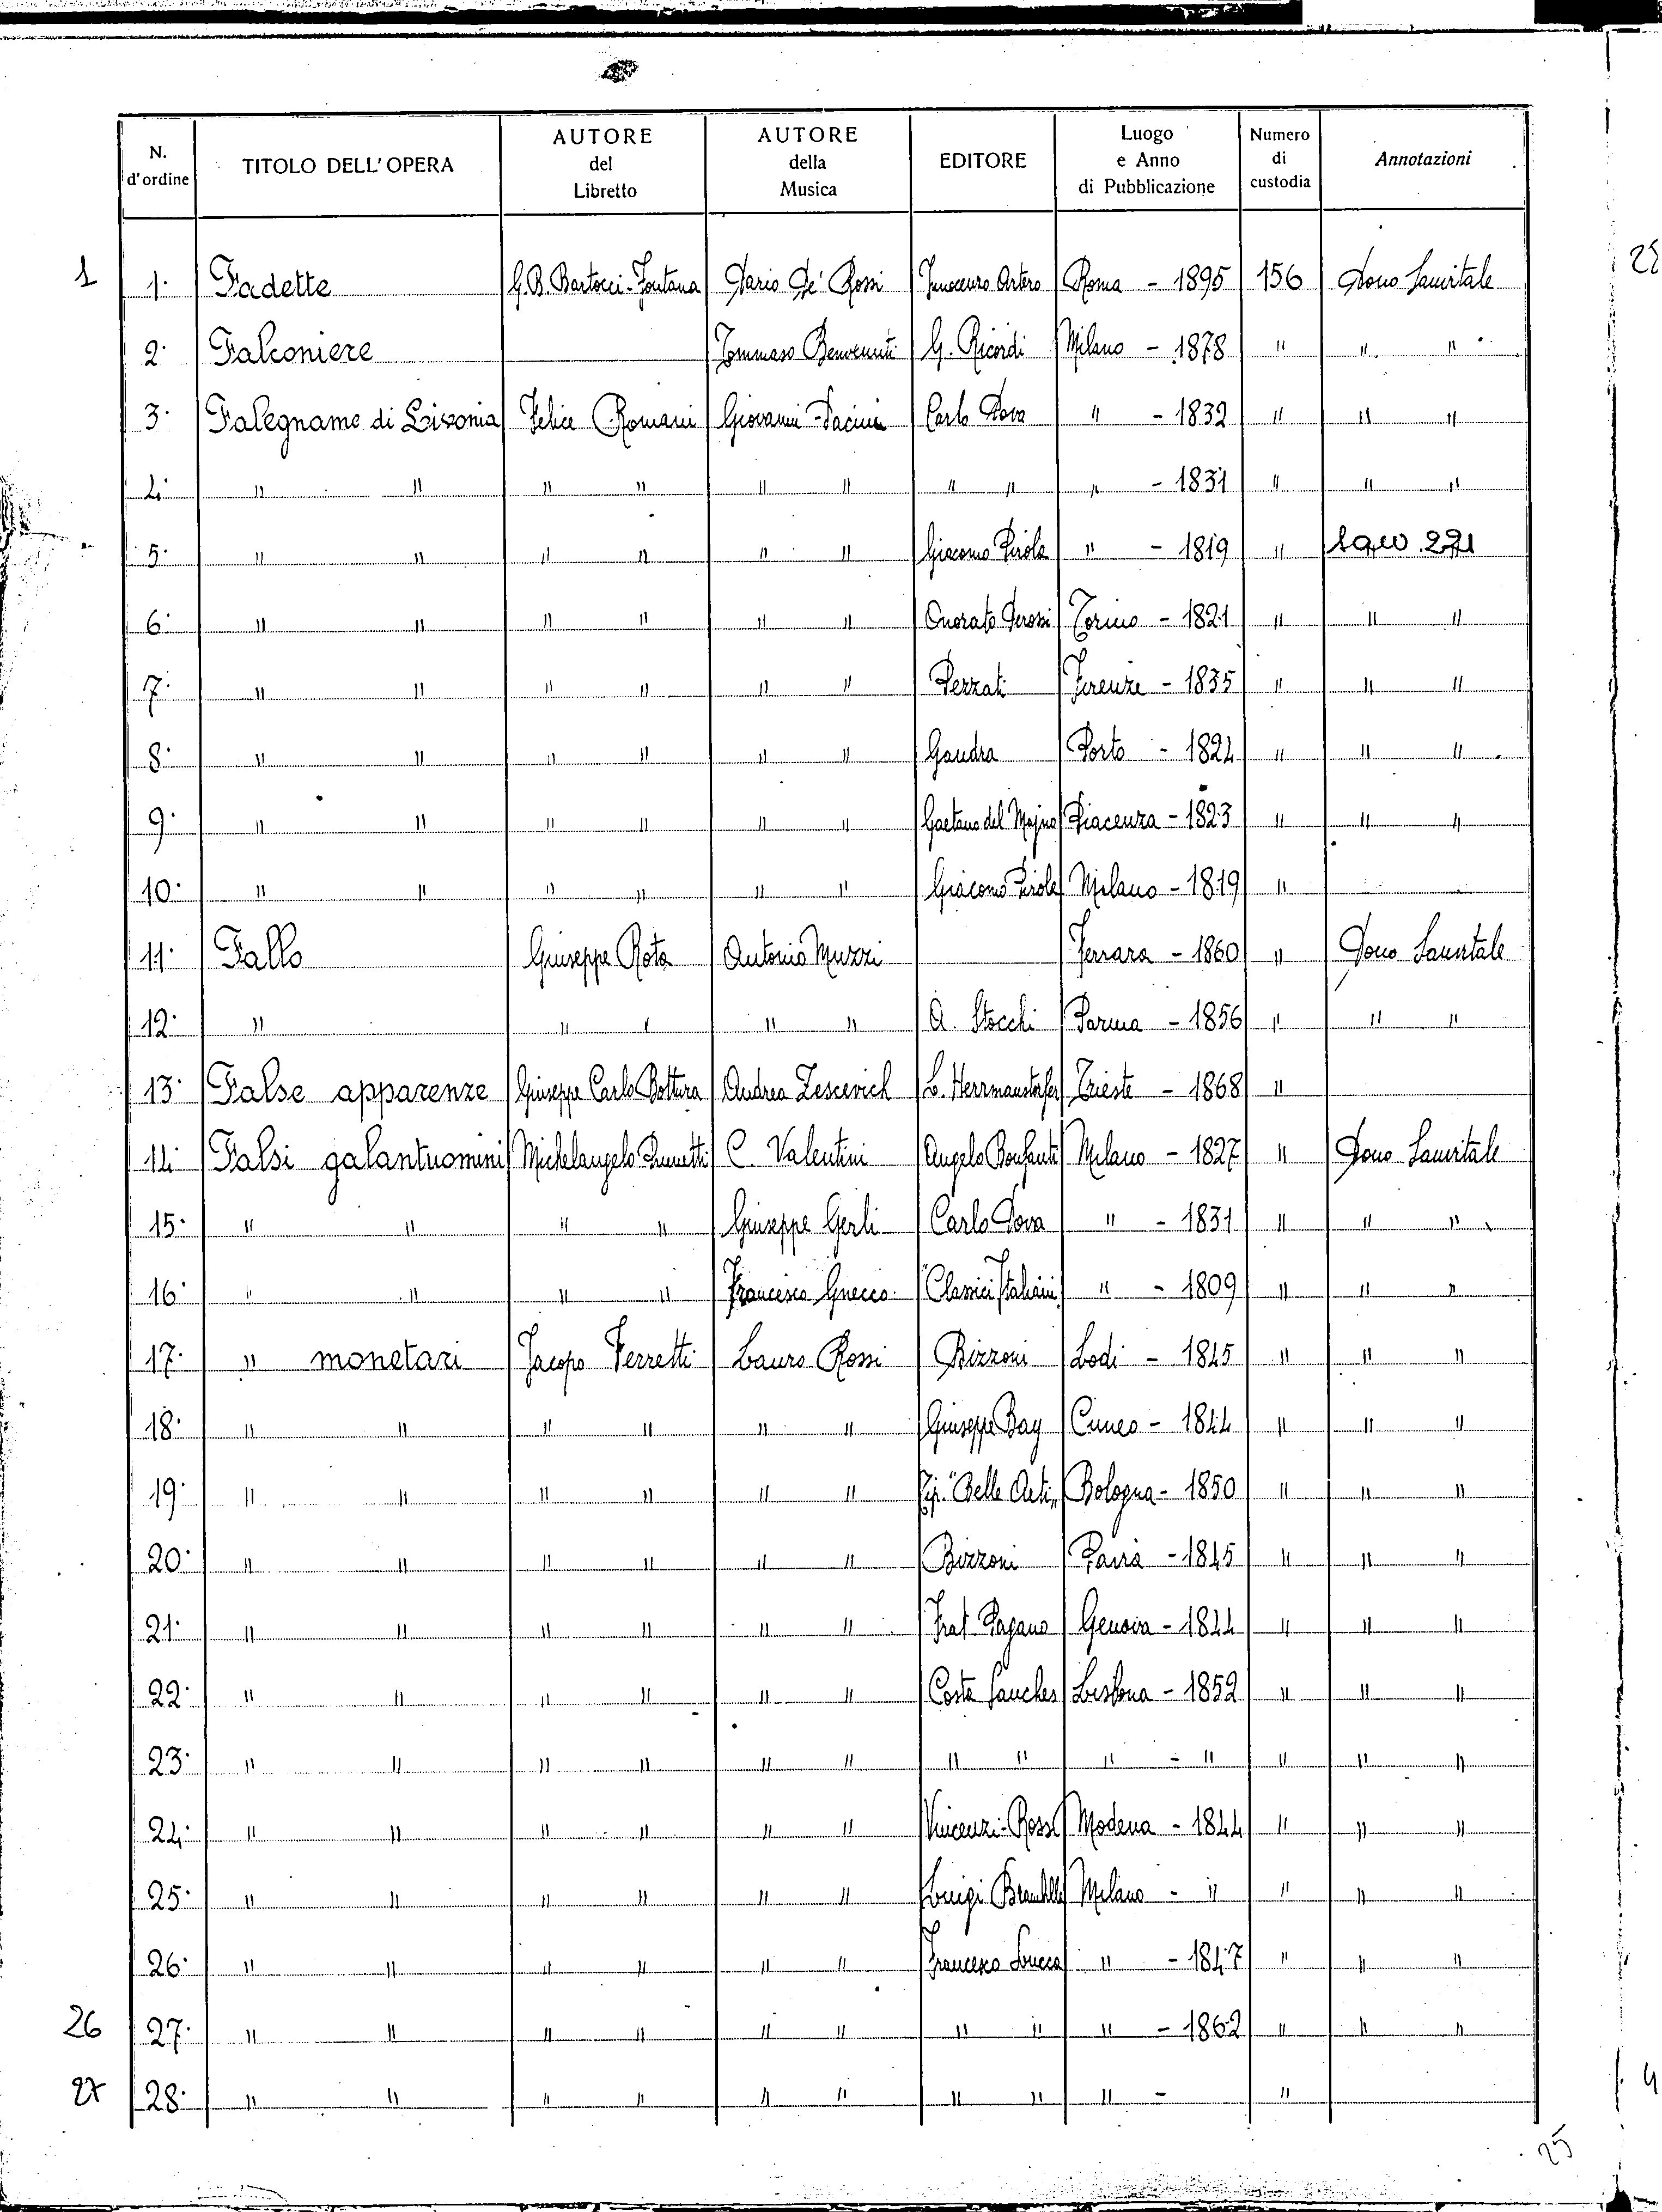 N. d'ordine | TITOLO DELL'OPERA | AUTORE del Libretto | AUTORE della Musica | EDITORE | Luogo e Anno di Pubblicazione | Numero di custodia | Annotazioni
1 1. Fadette G. B. Bartocci-Fontana Dario De' Rossi Innocenzo Artero Roma - 1895 156 Dono Sanvitale
2. Falconiere Tommaso Benvenuti G. Ricordi Milano - 1878 " " "
3. Falegname di Livonia Felice Romani Giovanni Pacini Carlo Dova " - 1832 " " "
4. " " " " " " " " " - 1831 " " "
5. " " " " " " Giacomo Pirola " - 1819 "
6. " " " " " " Onorato Derossi Torino - 1821 " " "
7. " " " " " " Pezzati Firenze - 1835 " " "
8. " " " " " " Gandra Porto - 1824 " " "
9. " " " " " " Gaetano del Majno Piacenza - 1823 " " "
10. " " " " " " Giacomo Pirola Milano - 1819 "
11. Fallo Giuseppe Rota Antonio Muzzi Ferrara - 1860 " Dono Sanvitale
12. " " " " " A. Stocchi Parma - 1856 " " "
13. False apparenze Giuseppe Carlo Bottura Andrea Zescevich L. Herrmanstorfer Trieste - 1868 "
14. Falsi galantuomini Michelangelo Prunetti C. Valentini Angelo Bonfanti Milano - 1827 " Dono Sanvitale
15. " " " " Giuseppe Gerli Carlo Dova " - 1831 " " "
16. " " " " Francesco Gnecco "Classici Italiani " - 1809 " " "
17. " monetari Jacopo Ferretti Lauro Rossi Bizzoni Lodi - 1845 " " "
18. " " " " " " Giuseppe Bay Cuneo - 1844 " " "
19. " " " " " " Tip. "Belle Arti" Bologna - 1850 " " "
20. " " " " " " Bizzoni Pavia - 1845 " " "
21. " " " " " " Frat. Pagano Genova - 1844 " " "
22. " " " " " " Costa Sanches Lisbona - 1852 " " "
23. " " " " " " " " " - " " " "
24. " " " " " " Vincenzi-Rossi Modena - 1844 " " "
25. " " " " " " Luigi Milano - " " " "
26. " " " " " " Francesco Lucca " - 1847 " " "
26 27. " " " " " " " " " - 1862 " " "
27 28. " " " " " " " " " - "
25